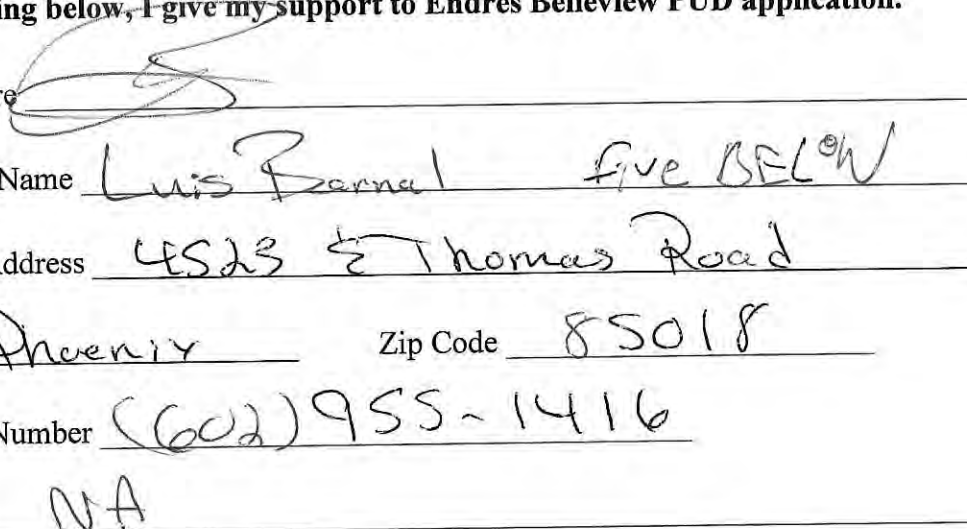 ing below, I give my support to Endres Belleview PUD application.
re
Name Luis Bernal five BELOW
ddress 4523 E Thomas Road
Phoenix Zip Code 85018
Number (602) 955-1416
NA